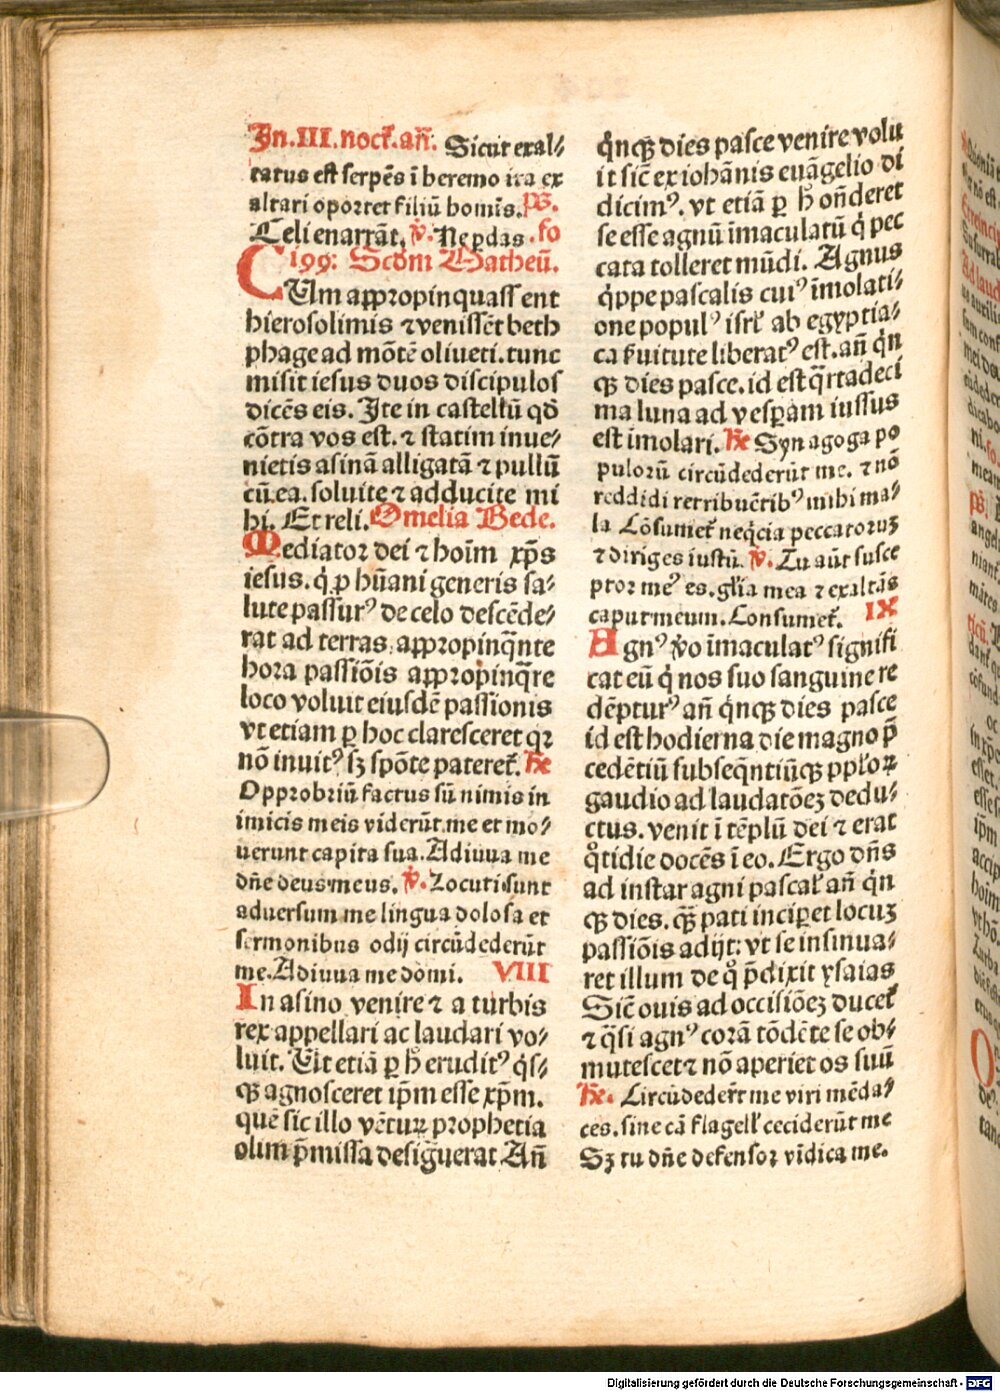 In.III.noct̄.añ. Sicut exal⸗
tatus est serpēs ī heremo ita ex
altari oportet filiū homis̄.ps̄.
Celi enarrāt. v̄. Ne perdas .fo
199: Scdm Matheū.
CUm appropinquass ent
hierosolimis ⁊ venissēt beth
phage ad mōtē oliueti. tunc
misit iesus duos discipulos
dicēs eis. Ite in castellū qd̄
cōtra vos est. ⁊ statim inue⸗
nietis asinā alligatā ⁊ pullū
cū ea. soluite ⁊ adducite mi
hi. Et reli. Omelia Bede.
Mediator dei ⁊ hoīm xp̄s
iesus. q̇ ꝓ hūani generis sa⸗
lute passurꝰ de celo descēde⸗
rat ad terras appropinq̄nte
hora passiōis appropinq̄re
loco voluit eiusdē passionis
vt etiam ꝑ hoc claresceret qꝛ
nō inuitꝰ sꝫ spōte pateret̄. R̄e
Opprobriū factus sū nimis in
imicis meis viderūt me et mo⸗
uerunt capita sua. Adiuua me
dñe deus meus. v̄. Locuti sunt
aduersum me lingua dolosa et
sermonibus odij circūdederūt
me. Adiuua me domi. VIII
In asino venire ⁊ a turbis
rex appellari ac laudari vo⸗
luit. Ut etiā ꝑ h̄ eruditꝰ q̇s⸗
qꝫ agnosceret ip̄m esse xp̄m.
quē sic illo vētuꝝ prophetia
olim p̄missa desig̃uerat Añ
q̇nqꝫ dies pasce venire volu
it sic̄ ex iohānis euāgelio di
dicimꝰ. vt etiā ꝑ h̄ oñderet
se esse agnū īmaculatū q̇ pec
cata tolleret mūdi. Agnus
q̇ppe pascalis cuiꝰ īmolati⸗
one populꝰ isrl̄ ab egyptia⸗
ca s̄uitute liberatꝰ est. añ q̇n
qꝫ dies pasce. id est q̄rtadeci
ma luna ad vesꝑam iussus
est īmolari. R̄e Synagoga po
pulorū circūdederūt me. ⁊ nō
reddidi retribuētibꝰ mihi ma⸗
la Cōsumet̄ neq̇cia peccatoruꝫ
⁊ diriges iustū. v̄. Tu aūt susce
ptor meꝰ es. gl̄ia mea ⁊ exaltās
caput meum. Consumet̄. IX
Agnꝰ v̊o īmaculatꝰ signifi
cat eū q̇ nos suo sanguine re
dēpturꝰ añ q̇nqꝫ dies pasce
id est hodierna die magno p̄
cedētiū subseq̄ntiūqꝫ ppl̄oꝝ
gaudio ad laudatōeꝫ dedu⸗
ctus. venit ī tēplū dei ⁊ erat
q̊tidie docēs ī eo. Ergo dñs
ad instar agni pascal̄ añ q̇n
qꝫ dies. qꝫ pati inciꝑet locuꝫ
passiōis adijt: vt se insinua⸗
ret illum de q̊ p̄dixit ysaias
Sic̄ ouis ad occisiōeꝫ ducet̄
⁊ q̄si agnꝰ corā tōdēte se ob⸗
mutescet ⁊ nō aperiet os suū
R̄e. Circūdeder̄t me viri mēda⸗
ces. sine cā flagell̄ ceciderūt me
Sꝫ tu dñe defensor vīdica me.
Digitalisierung gefördert durch die Deutsche Forschungsgemeinschaft - DFG